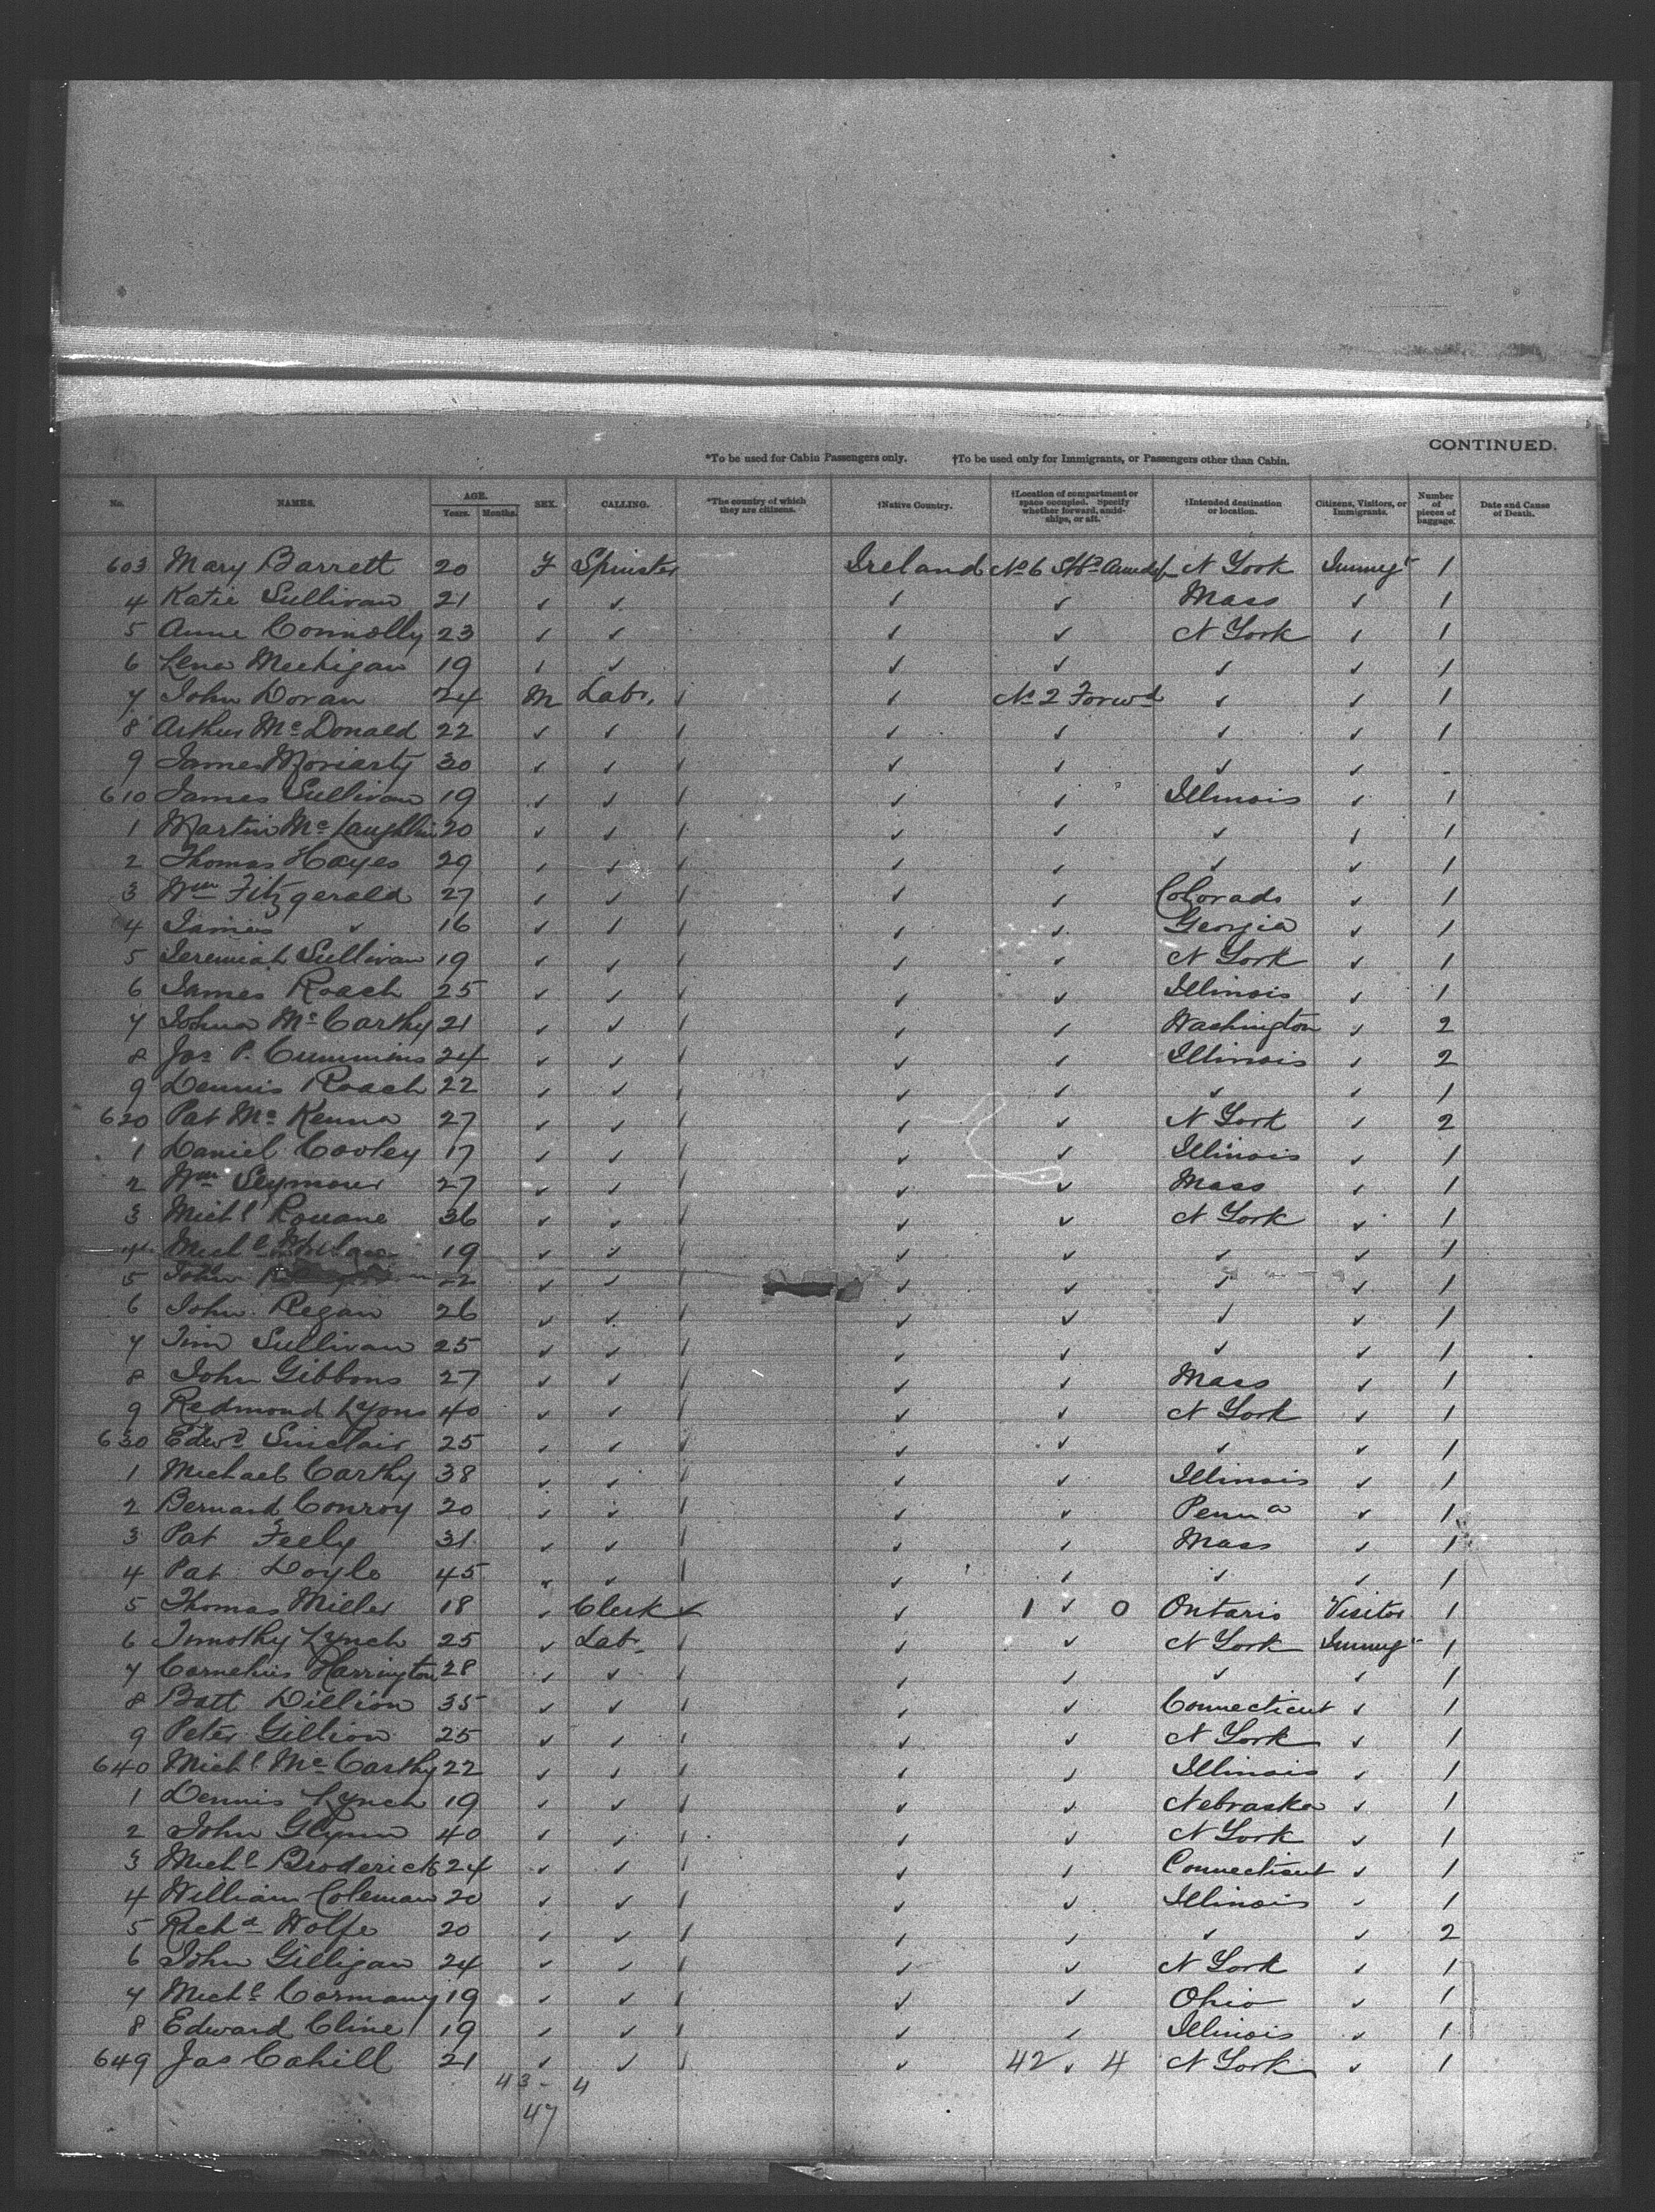 CONTINUED.
*To be used for Cabin Passengers only. †To be used only for Immigrants, or Passengers other than Cabin.
No. NAMES. AGE. Years. Months. SEX. CALLING. *The country of which they are citizens. †Native Country. †Location of compartment or space occupied. Specify whether forward, amidships, or aft. †Intended destination or location. Citizens, Visitors, or Immigrants. Number of pieces of baggage. Date and Cause of Death.
603 Mary Barrett 20 F Spinster Ireland No 6 N York Immigt 1
4 Katie Sullivan 21 ✓ ✓ ✓ ✓ Mass ✓ 1
5 Anne Connolly 23 ✓ ✓ ✓ ✓ N York ✓ 1
6 Lena Meehigan 19 ✓ ✓ ✓ ✓ ✓ ✓ 1
7 John Doran 24 M Labr. / ✓ No 2 Forwd ✓ ✓ 1
8 Arthur McDonald 22 ✓ ✓ / ✓ ✓ ✓ ✓ 1
9 James Moriarty 30 ✓ ✓ / ✓ ✓ ✓ ✓ -
610 James Sullivan 19 ✓ ✓ / ✓ ✓ Illinois ✓ 1
1 Martin McLaughlin 20 ✓ ✓ / ✓ ✓ ✓ ✓ 1
2 Thomas Hayes 29 ✓ ✓ / ✓ ✓ ✓ ✓ 1
3 Wm Fitzgerald 27 ✓ ✓ / ✓ ✓ Colorado ✓ 1
4 James ✓ 16 ✓ ✓ / ✓ ✓ Georgia ✓ 1
5 Jeremiah Sullivan 19 ✓ ✓ / ✓ ✓ N York ✓ 1
6 James Roach 25 ✓ ✓ / ✓ ✓ Illinois ✓ 1
7 McCarthy 21 ✓ ✓ / ✓ ✓ Washington ✓ 2
8 Jas P. Cummins 24 ✓ ✓ / ✓ ✓ Illinois ✓ 2
9 Dennis Roach 22 ✓ ✓ / ✓ ✓ ✓ ✓ 1
620 Pat McKenna 27 ✓ ✓ / ✓ ✓ N York ✓ 2
1 Daniel Cooley 17 ✓ ✓ / ✓ ✓ Illinois ✓ 1
2 Wm Seymour 27 ✓ ✓ / ✓ ✓ Mass ✓ 1
3 Michl Rouane 36 ✓ ✓ / ✓ ✓ N York ✓ 1
4 Michl 19 ✓ ✓ / ✓ ✓ ✓ ✓ 1
5 John 22 ✓ ✓ / ✓ ✓ ✓ ✓ 1
6 John Regan 26 ✓ ✓ / ✓ ✓ ✓ ✓ 1
7 Tim Sullivan 25 ✓ ✓ / ✓ ✓ ✓ ✓ 1
8 John Gibbons 27 ✓ ✓ / ✓ ✓ Mass ✓ 1
9 Redmond Lyons 40 ✓ ✓ / ✓ ✓ N York ✓ 1
630 Edwd Sinclair 25 ✓ ✓ ✓ ✓ ✓ ✓ ✓ 1
1 Michael Carthy 38 ✓ ✓ / ✓ ✓ Illinois ✓ 1
2 Bernard Conroy 20 ✓ ✓ / ✓ ✓ Penna ✓ 1
3 Pat Feely 31 ✓ ✓ / ✓ ✓ Mass ✓ 1
4 Pat Doyle 45 ✓ ✓ / ✓ ✓ ✓ ✓ 1
5 Thomas Miller 18 ✓ Clerk ✓ ✓ 1 ✓ 0 Ontario Visitor 1
6 Timothy Lynch 25 ✓ Labr / ✓ ✓ N York Immigt 1
7 Cornelius Harrington 28 ✓ ✓ / ✓ ✓ ✓ ✓ 1
8 Batt Dillion 35 ✓ ✓ / ✓ ✓ Connecticut ✓ 1
9 Peter Gillion 25 ✓ ✓ / ✓ ✓ N York ✓ 1
640 Michl McCarthy 22 ✓ ✓ / ✓ ✓ Illinois ✓ 1
1 Dennis Lynch 19 ✓ ✓ / ✓ ✓ Nebraska ✓ 1
2 John Glynn 40 ✓ ✓ / ✓ ✓ N York ✓ 1
3 Michl Broderick 24 ✓ ✓ / ✓ ✓ Connecticut ✓ 1
4 William Coleman 20 ✓ ✓ / ✓ ✓ Illinois ✓ 1
5 Richd Wolfe 20 ✓ ✓ / ✓ ✓ ✓ ✓ 2
6 John Gilligan 24 ✓ ✓ / ✓ ✓ N York ✓ 1
7 Michl Cormany 19 ✓ ✓ / ✓ ✓ Ohio ✓ 1
8 Edward Cline 19 ✓ ✓ / ✓ ✓ Illinois ✓ 1
649 Jas Cahill 21 ✓ ✓ / ✓ 42 ✓ 4 N York ✓ 1
43 - 4
47